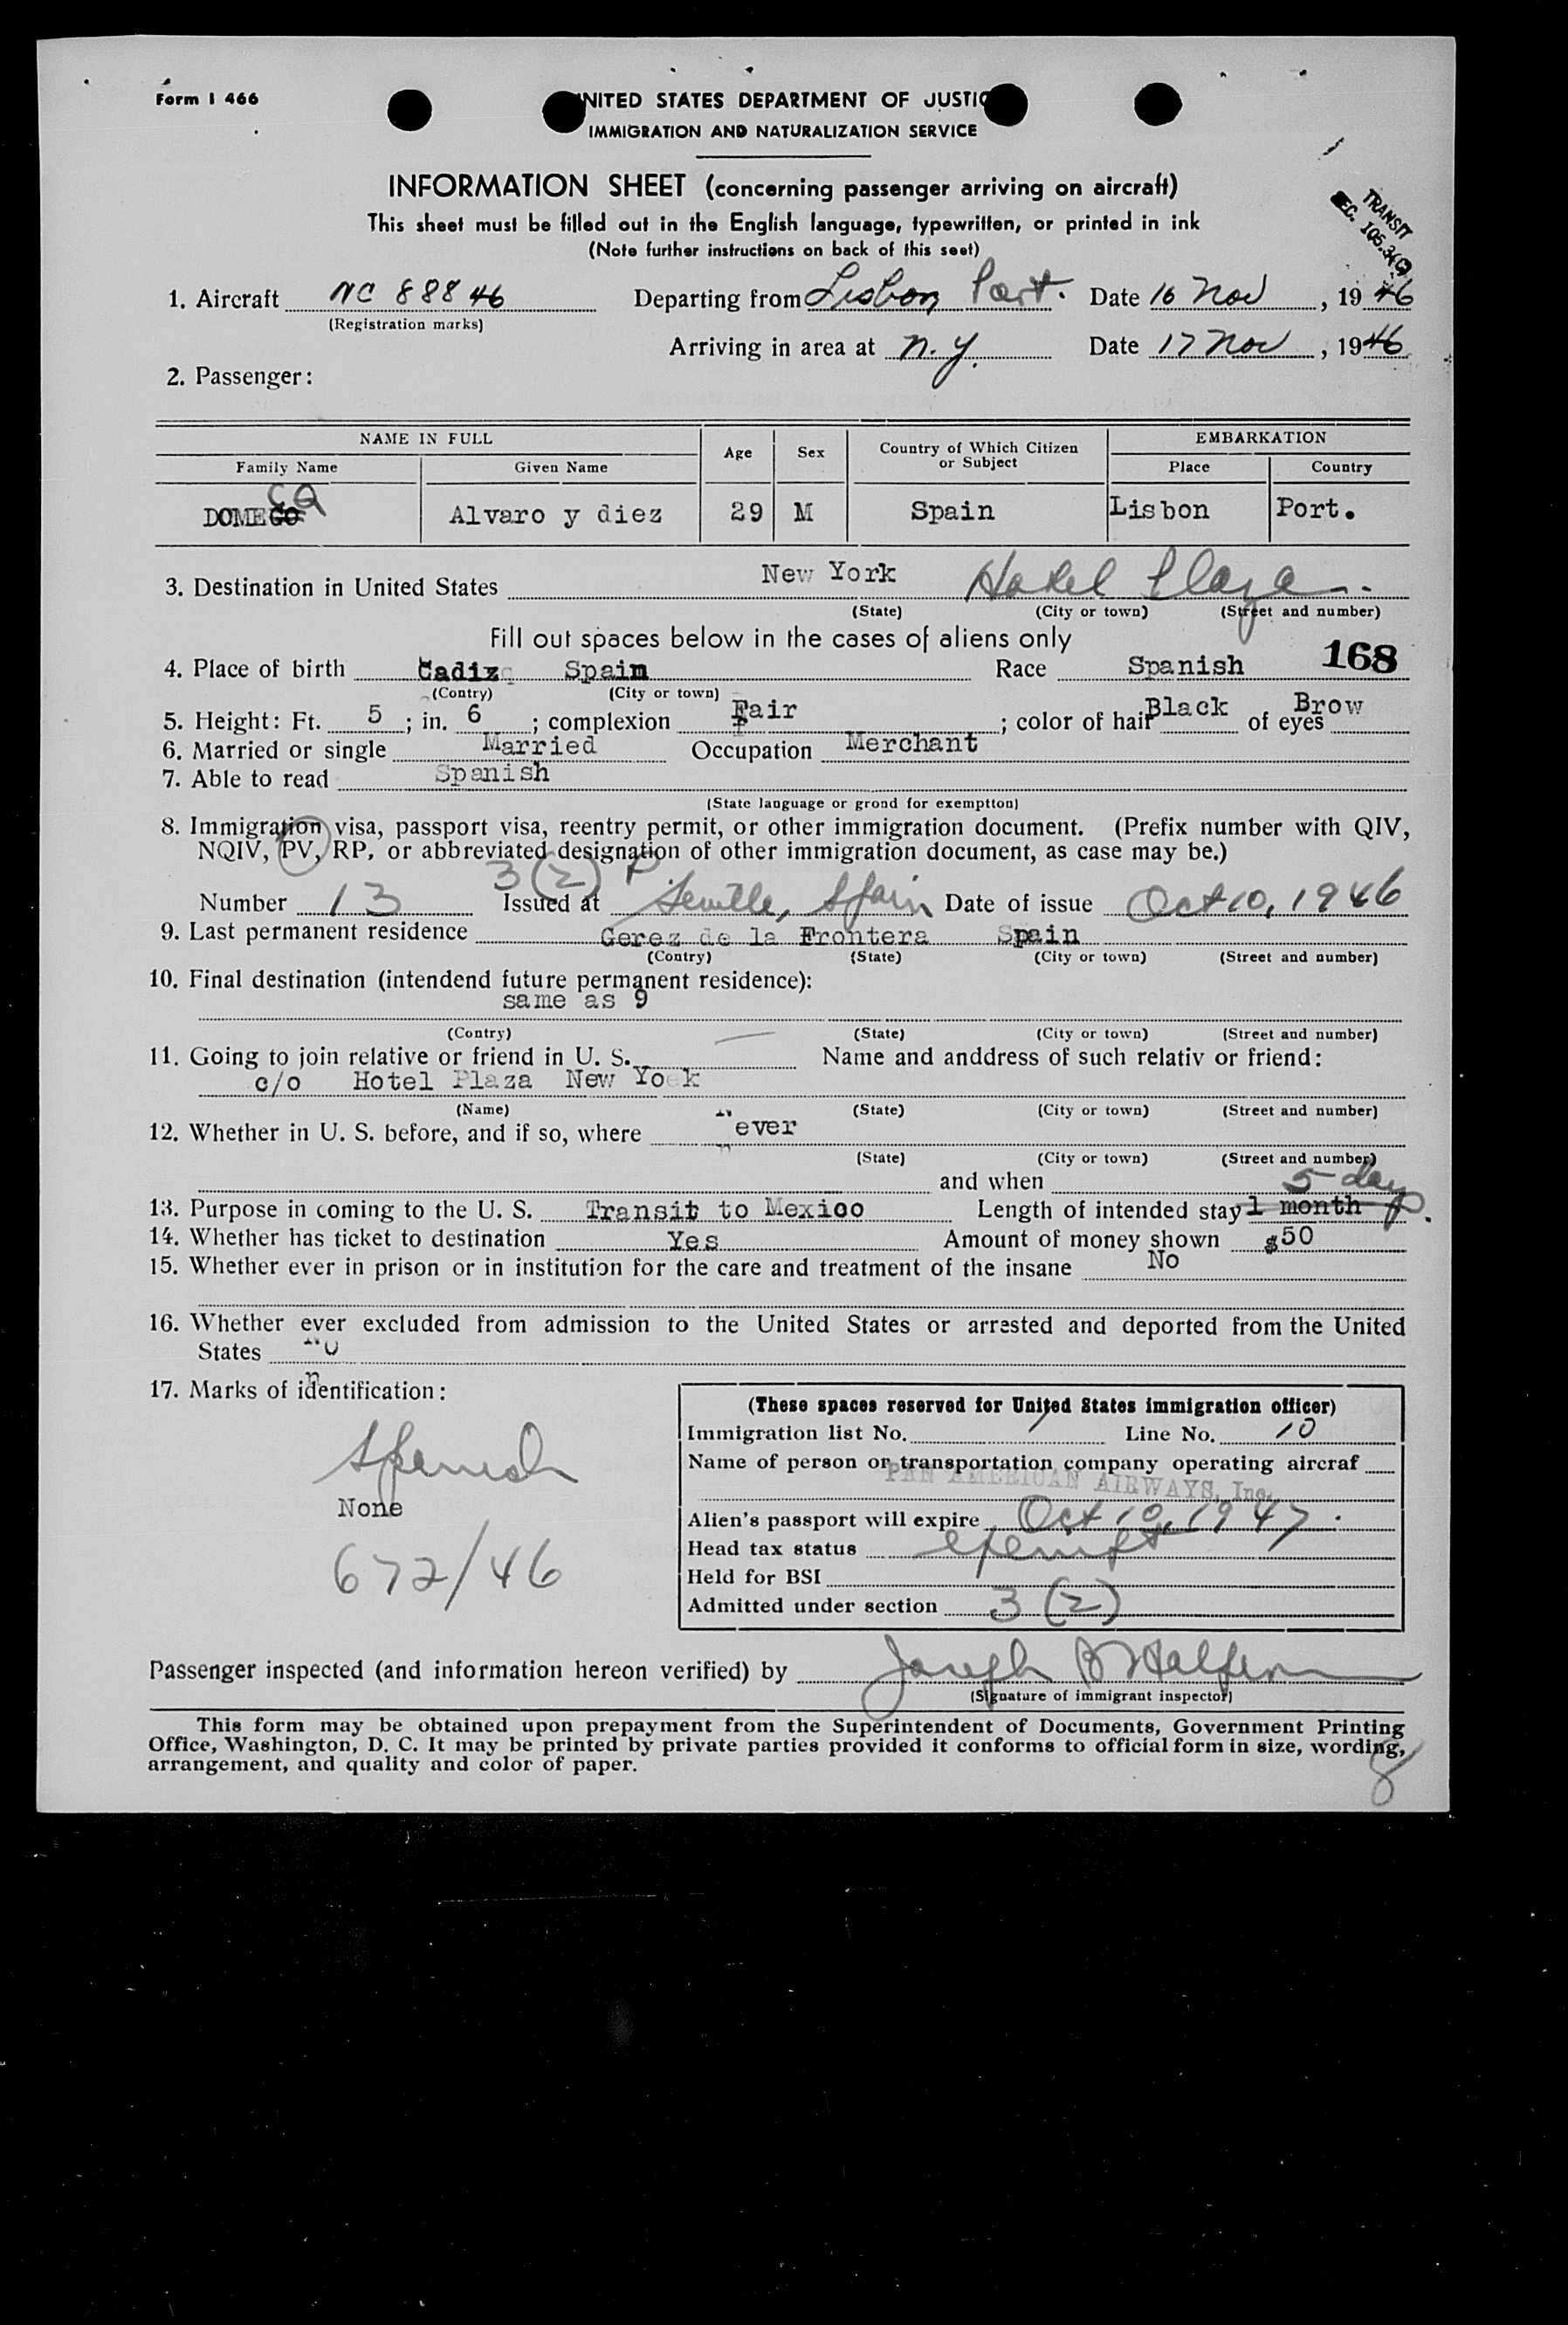 Form I 466
UNITED STATES DEPARTMENT OF JUSTIC
IMMIGRATION AND NATURALIZATION SERVICE
INFORMATION SHEET (concerning passenger arriving on aircraft)
This sheet must be filled out in the English language, typewritten, or printed in ink
(Note further instructions on back of this seet)
TRANSIT
SEC. 105.3(Q)
1. Aircraft NC 88846 Departing from Lisbon Port. Date 16 Nov, 1946
(Registration marks)
Arriving in area at N.Y. Date 17 Nov, 1946
2. Passenger:
NAME IN FULL Age Sex Country of Which Citizen or Subject EMBARKATION
Family Name Given Name Place Country
CQ
DOMEGO Alvaro y diez 29 M Spain Lisbon Port.
3. Destination in United States New York Hotel Plaza
(State) (City or town) (Street and number)
Fill out spaces below in the cases of aliens only
168
4. Place of birth Cadiz Spain Race Spanish
(Contry) (City or town)
5. Height: Ft. 5; in. 6; complexion Fair; color of hair Black of eyes Brow
6. Married or single Married Occupation Merchant
7. Able to read Spanish
(State language or grond for exemptton)
8. Immigration visa, passport visa, reentry permit, or other immigration document. (Prefix number with QIV,
NQIV, PV, RP, or abbreviated designation of other immigration document, as case may be.)
3(2) P
Number 13 Issued at Seville, Spain Date of issue Oct 10, 1946
9. Last permanent residence Gerez de la Frontera Spain
(Contry) (State) (City or town) (Street and number)
10. Final destination (intendend future permanent residence):
same as 9
(Contry) (State) (City or town) (Street and number)
11. Going to join relative or friend in U. S. Name and anddress of such relativ or friend:
c/o Hotel Plaza New Yo k
(Name) (State) (City or town) (Street and number)
12. Whether in U. S. before, and if so, where never
(State) (City or town) (Street and number)
and when
5 days
13. Purpose in coming to the U. S. Transit to Mexico Length of intended stay 1 month
14. Whether has ticket to destination Yes Amount of money shown $50
15. Whether ever in prison or in institution for the care and treatment of the insane No
16. Whether ever excluded from admission to the United States or arrested and deported from the United
States no
17. Marks of identification:
Spanish
None
672/46
(These spaces reserved for United States immigration officer)
Immigration list No. 1 Line No. 10
Name of person or transportation company operating aircraf
PAN AMERICAN AIRWAYS, Inc.
Alien's passport will expire Oct 10, 1947.
Head tax status exempt
Held for BSI
Admitted under section 3(2)
Passenger inspected (and information hereon verified) by Joseph B Halfern
(Signature of immigrant inspector)
This form may be obtained upon prepayment from the Superintendent of Documents, Government Printing
Office, Washington, D. C. It may be printed by private parties provided it conforms to official form in size, wording,
arrangement, and quality and color of paper.
8